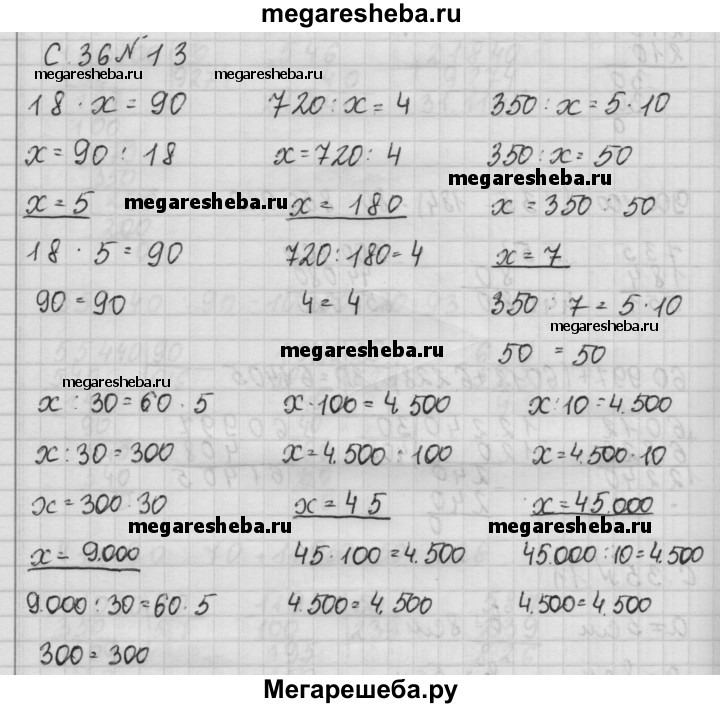 megaresheba.ru
С. 36 № 13
megaresheba.ru megaresheba.ru
18 · x = 90 720 : x = 4 350 : x = 5 · 10
x = 90 : 18 x = 720 : 4 350 : x = 50
megaresheba.ru
x = 5 megaresheba.ru x = 180 x = 350 : 50
18 · 5 = 90 720 : 180 = 4 x = 7
90 = 90 4 = 4 350 : 7 = 5 · 10
megaresheba.ru
megaresheba.ru 50 = 50
megaresheba.ru
x : 30 = 60 · 5 x · 100 = 4.500 x : 10 = 4.500
x : 30 = 300 x = 4.500 : 100 x = 4.500 · 10
x = 300 · 30 x = 45 x = 45.000
megaresheba.ru megaresheba.ru
x = 9.000 45 · 100 = 4.500 45.000 : 10 = 4.500
9.000 : 30 = 60 · 5 4.500 = 4.500 4.500 = 4.500
300 = 300
Мегарешеба.ру